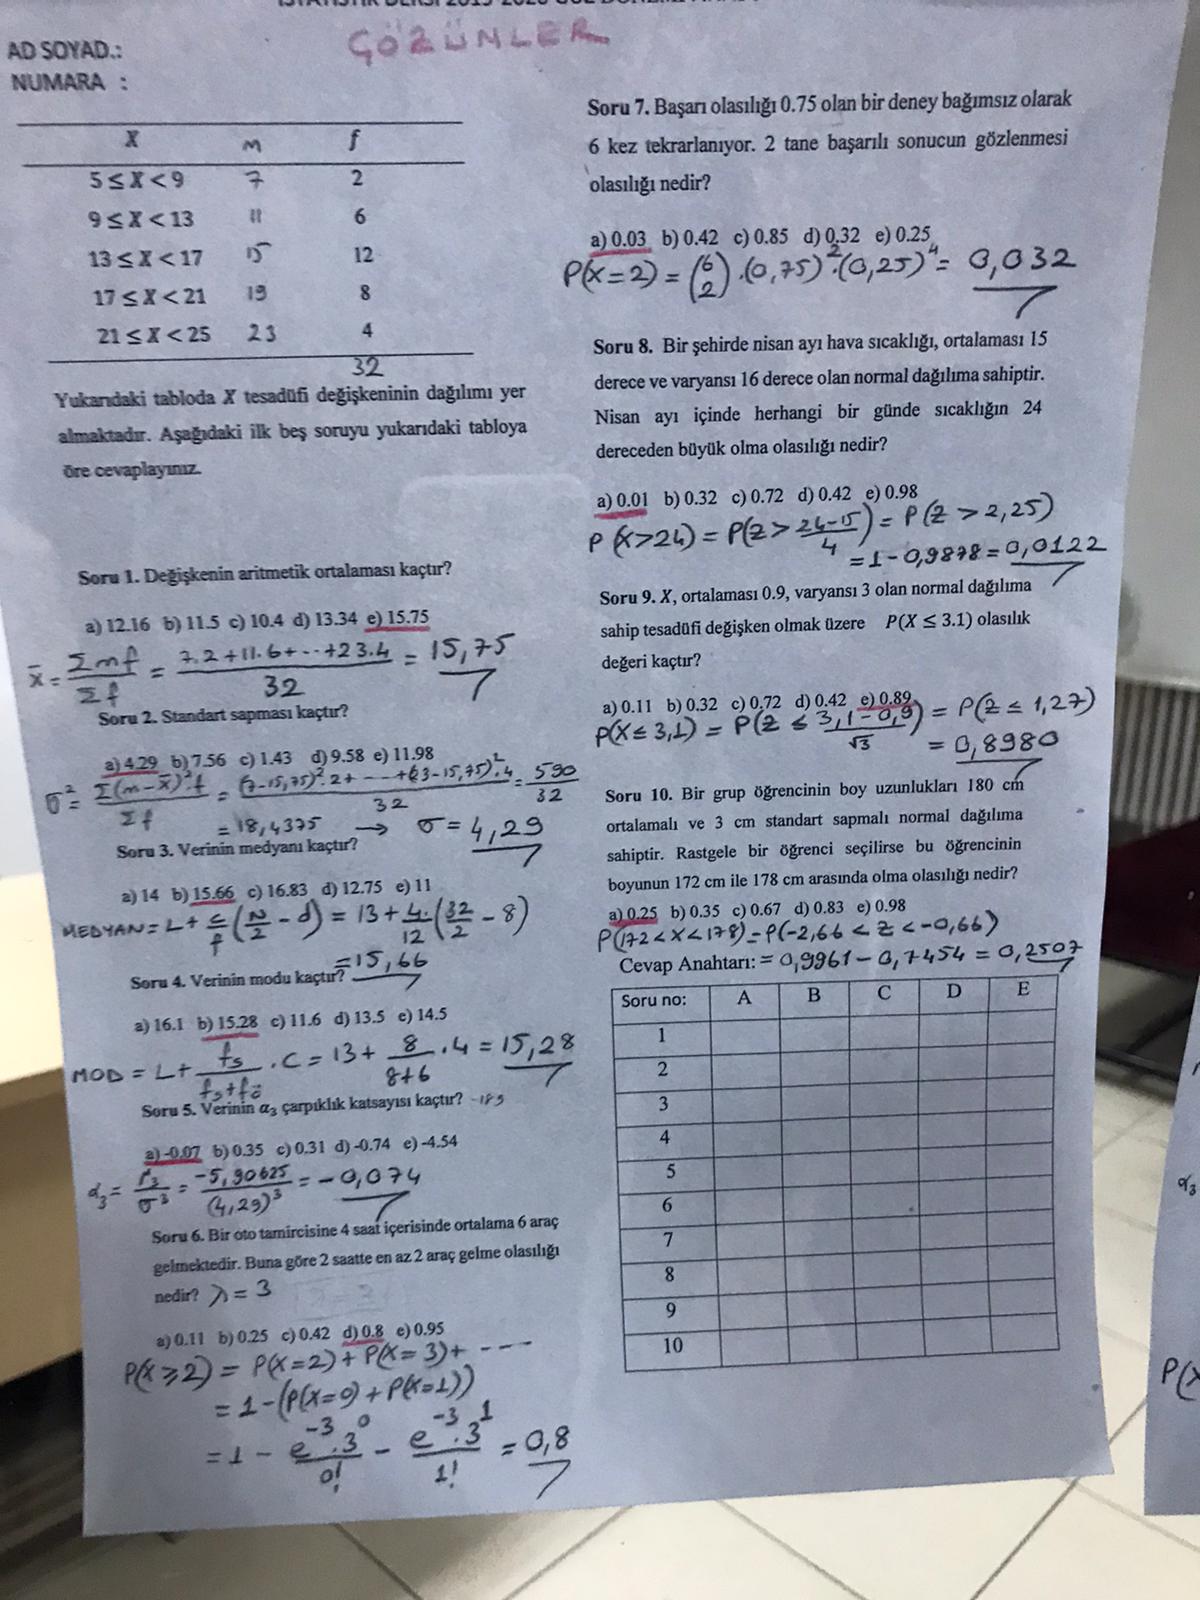 ÇÖZÜMLER
AD SOYAD.:
NUMARA :
X m f
5 ≤ X < 9 7 2
9 ≤ X < 13 11 6
13 ≤ X < 17 15 12
17 ≤ X < 21 19 8
21 ≤ X < 25 23 4
32
Yukarıdaki tabloda X tesadüfi değişkeninin dağılımı yer
almaktadır. Aşağıdaki ilk beş soruyu yukarıdaki tabloya
öre cevaplayınız.
Soru 1. Değişkenin aritmetik ortalaması kaçtır?
a) 12.16 b) 11.5 c) 10.4 d) 13.34 e) 15.75
x̄ = Σmf / Σf = 7.2+11.6+---+23.4 / 32 = 15,75
Soru 2. Standart sapması kaçtır?
a) 4.29 b) 7.56 c) 1.43 d) 9.58 e) 11.98
σ² = Σ(m-x̄)².f / Σf = (7-15,75)².2+ ---- +(23-15,75)².4 / 32 = 590 / 32
= 18,4375 → σ = 4,29
Soru 3. Verinin medyanı kaçtır?
a) 14 b) 15.66 c) 16.83 d) 12.75 e) 11
MEDYAN = L + c/f (N/2 - d) = 13 + 4/12 . (32/2 - 8)
= 15,66
Soru 4. Verinin modu kaçtır?
a) 16.1 b) 15.28 c) 11.6 d) 13.5 e) 14.5
MOD = L + fs / fs+fö . C = 13 + 8 / 8+6 . 4 = 15,28
Soru 5. Verinin α₃ çarpıklık katsayısı kaçtır? -189
a) -0.07 b) 0.35 c) 0.31 d) -0.74 e) -4.54
α₃ = μ₃ / σ³ = -5,90625 / (4,29)³ = -0,074
Soru 6. Bir oto tamircisine 4 saat içerisinde ortalama 6 araç
gelmektedir. Buna göre 2 saatte en az 2 araç gelme olasılığı
nedir? λ = 3
a) 0.11 b) 0.25 c) 0.42 d) 0.8 e) 0.95
P(X ≥ 2) = P(X=2) + P(X=3) + ----
= 1 - (P(X=0) + P(X=1))
= 1 - e⁻³.3⁰ / 0! - e⁻³.3¹ / 1! = 0,8
Soru 7. Başarı olasılığı 0.75 olan bir deney bağımsız olarak
6 kez tekrarlanıyor. 2 tane başarılı sonucun gözlenmesi
olasılığı nedir?
a) 0.03 b) 0.42 c) 0.85 d) 0.32 e) 0.25
P(X=2) = (6 2) . (0,75)² . (0,25)⁴ = 0,032
Soru 8. Bir şehirde nisan ayı hava sıcaklığı, ortalaması 15
derece ve varyansı 16 derece olan normal dağılıma sahiptir.
Nisan ayı içinde herhangi bir günde sıcaklığın 24
dereceden büyük olma olasılığı nedir?
a) 0.01 b) 0.32 c) 0.72 d) 0.42 e) 0.98
P(X>24) = P(Z > 24-15 / 4) = P(Z > 2,25)
= 1 - 0,9878 = 0,0122
Soru 9. X, ortalaması 0.9, varyansı 3 olan normal dağılıma
sahip tesadüfi değişken olmak üzere P(X ≤ 3.1) olasılık
değeri kaçtır?
a) 0.11 b) 0.32 c) 0.72 d) 0.42 e) 0.89
P(X ≤ 3,1) = P(Z ≤ 3,1-0,9 / √3) = P(Z ≤ 1,27)
= 0,8980
Soru 10. Bir grup öğrencinin boy uzunlukları 180 cm
ortalamalı ve 3 cm standart sapmalı normal dağılıma
sahiptir. Rastgele bir öğrenci seçilirse bu öğrencinin
boyunun 172 cm ile 178 cm arasında olma olasılığı nedir?
a) 0.25 b) 0.35 c) 0.67 d) 0.83 e) 0.98
P(172<X<178) = P(-2,66 < Z < -0,66)
Cevap Anahtarı: = 0,9961 - 0,7454 = 0,2507
Soru no: A B C D E
1
2
3
4
5
6
7
8
9
10
α₃